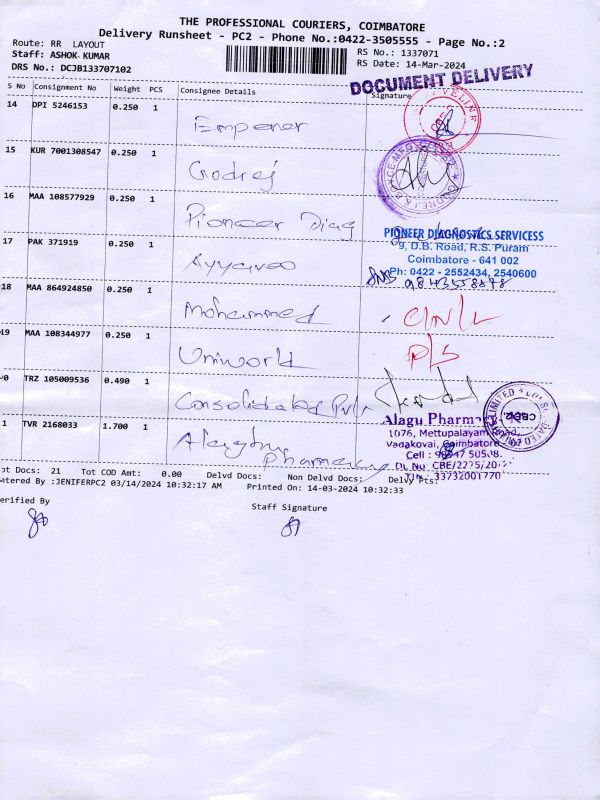 THE PROFESSIONAL COURIERS, COIMBATORE
Delivery Runsheet - PC2 - Phone No.:0422-3505555 - Page No.:2
Route: RR LAYOUT
Staff: ASHOK KUMAR
DRS No.: DCJB133707102
RS No.: 1337071
RS Date: 14-Mar-2024
DOCUMENT DELIVERY
S No Consignment No Weight PCS Consignee Details Signature
14 DPI 5246153 0.250 1
15 KUR 7001308547 0.250 1 Godrej
16 MAA 108577929 0.250 1 Pioneer Diag
PIONEER DIAGNOSTICS SERVICESS
9, D.B. Road, R.S. Puram
Coimbatore - 641 002
Ph: 0422 - 2552434, 2540600
17 PAK 371919 0.250 1 Ayyavoo
18 MAA 864924850 0.250 1 Mohammed
19 MAA 108344977 0.250 1 Uniworld D/S
0 TRZ 105009536 0.490 1 Consolidated
1 TVR 2168033 1.700 1 Pharmacy
Alagu Pharma
1076, Mettupalayam Road,
Vadakovai, Coimbatore
ot Docs: 21 Tot COD Amt: 0.00 Delvd Docs: Non Delvd Docs: Delvy Pts:
ntered By :JENIFERPC2 03/14/2024 10:32:17 AM Printed On: 14-03-2024 10:32:33
erified By
Staff Signature